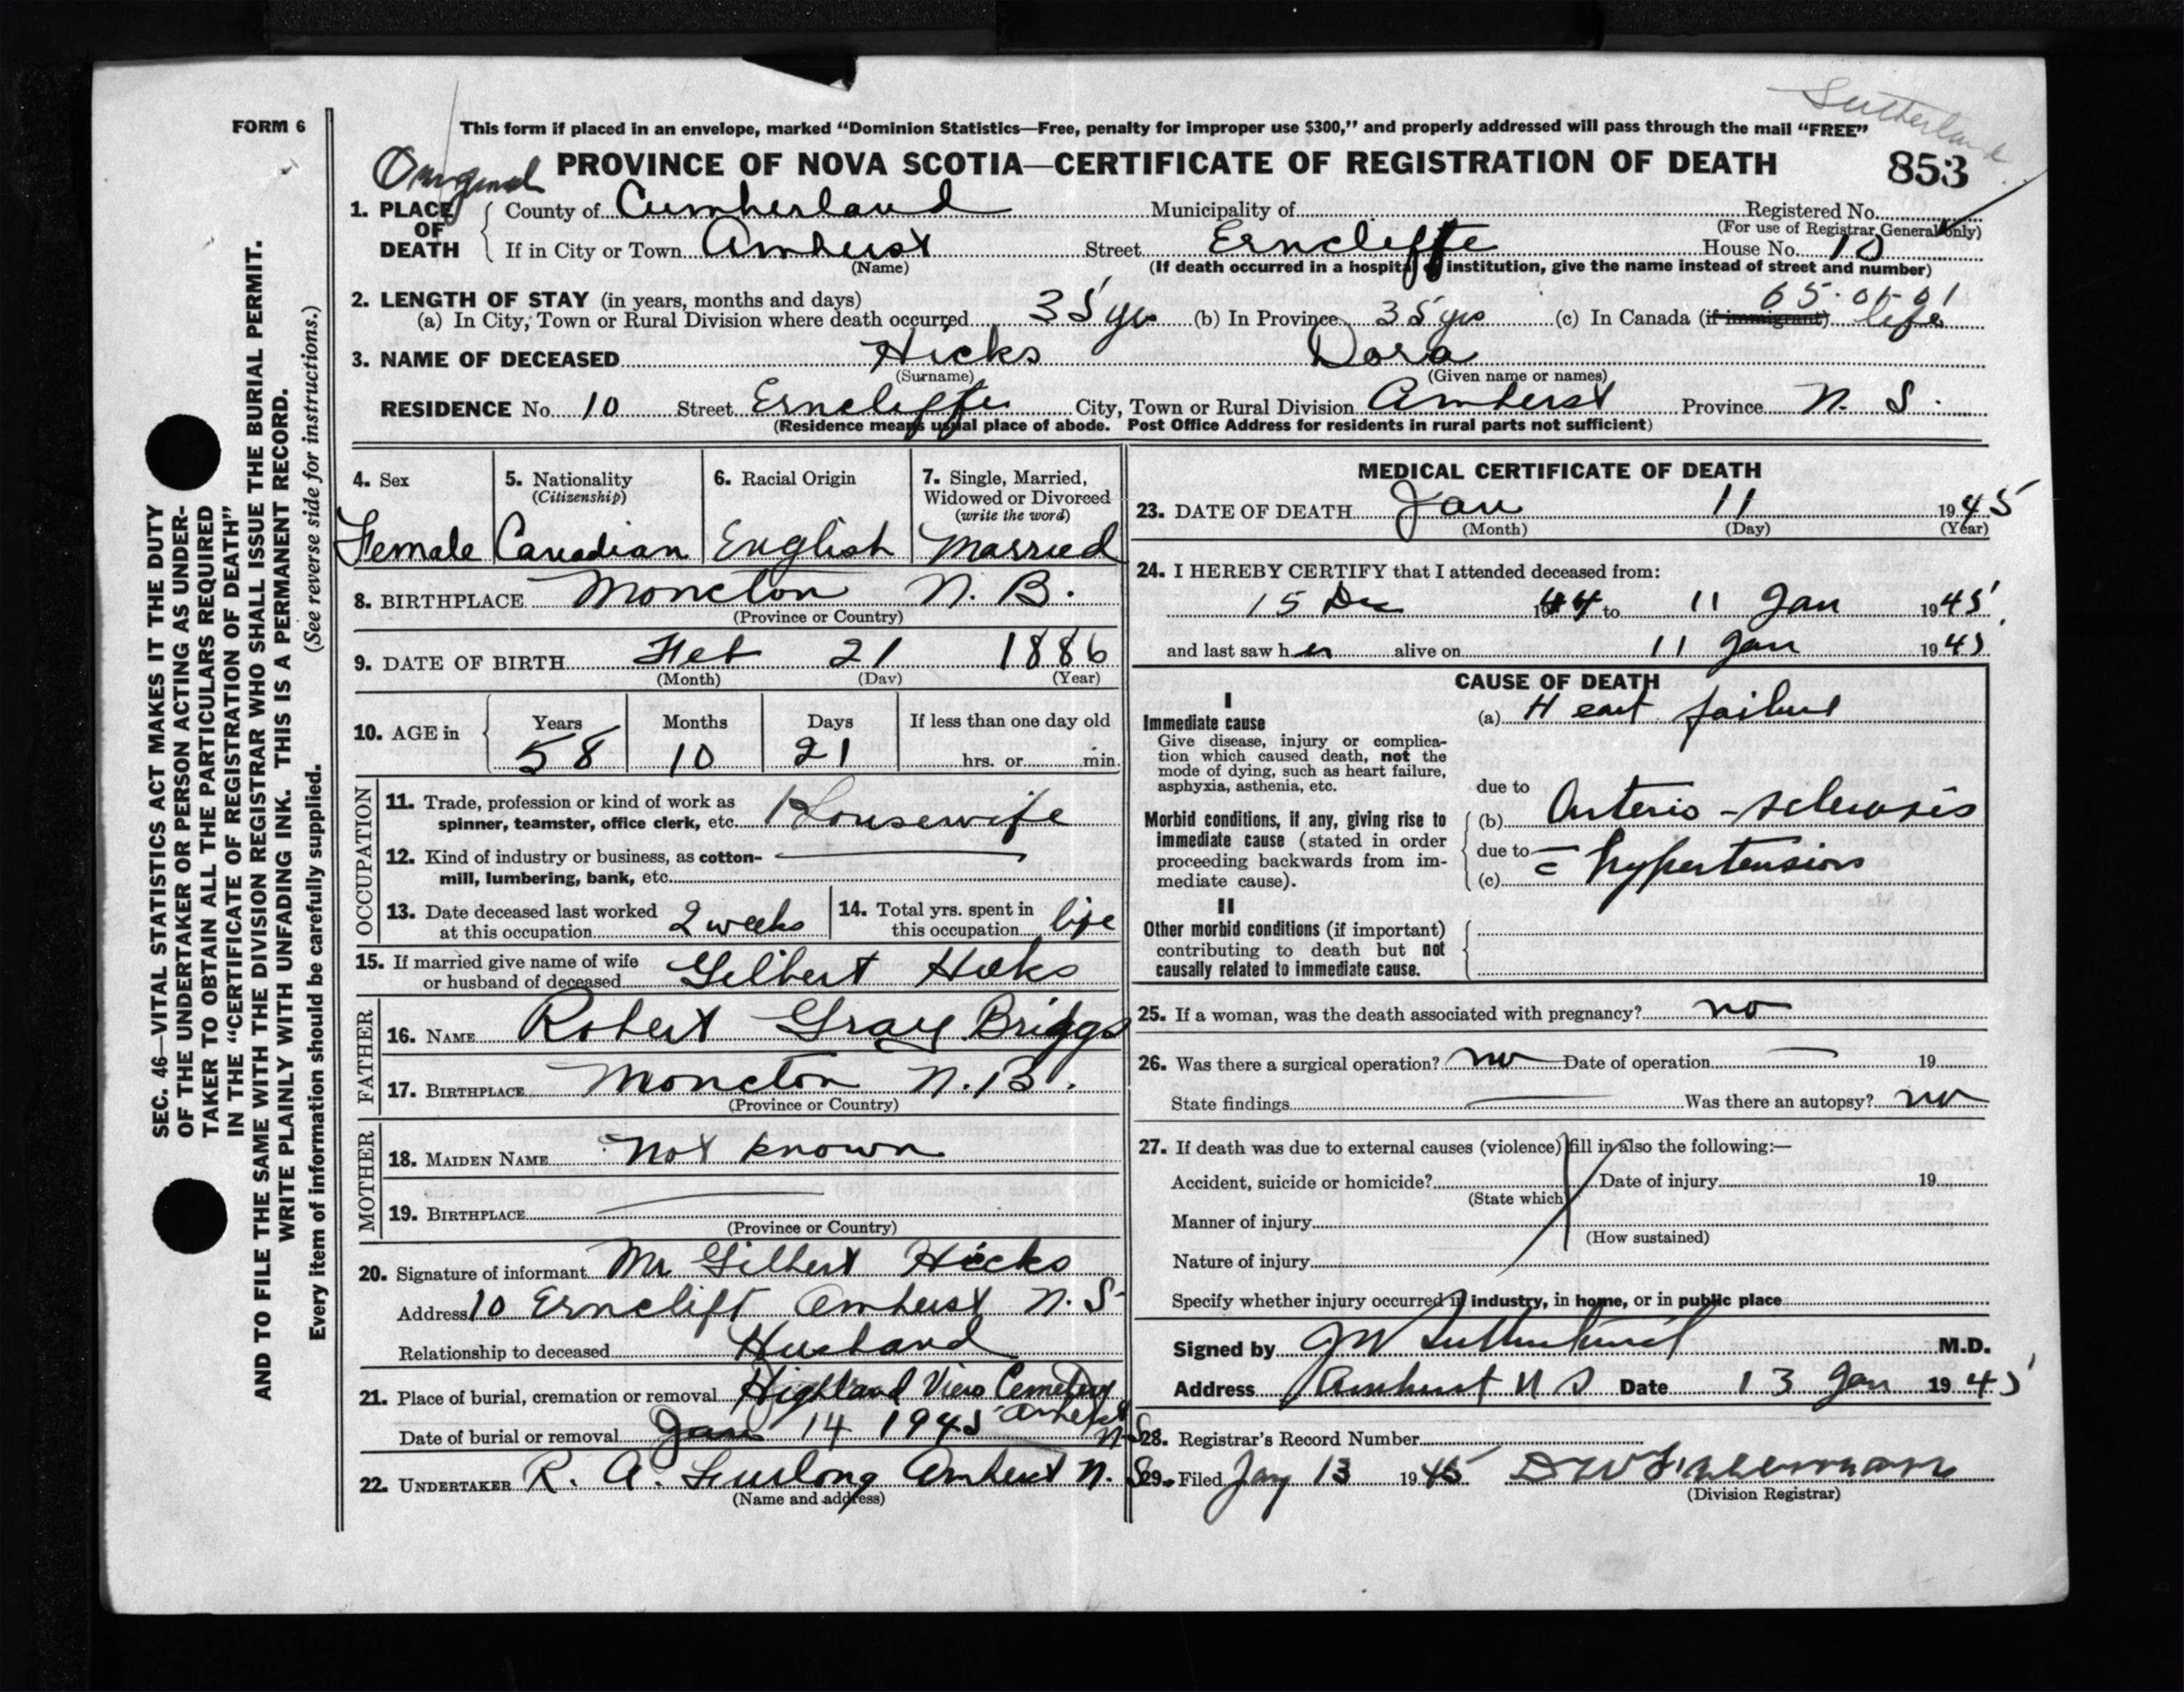 Sutherland
FORM 6
This form if placed in an envelope, marked "Dominion Statistics—Free, penalty for improper use $300," and properly addressed will pass through the mail "FREE"
Original PROVINCE OF NOVA SCOTIA—CERTIFICATE OF REGISTRATION OF DEATH 853
1. PLACE OF DEATH County of Cumberland Municipality of Registered No.
(For use of Registrar General only)
If in City or Town Amherst Street Erncliffe House No. 10
(Name) (If death occurred in a hospital or institution, give the name instead of street and number)
2. LENGTH OF STAY (in years, months and days) 65-01-01
(a) In City, Town or Rural Division where death occurred 35 yrs (b) In Province 35 yrs (c) In Canada (if immigrant) life
3. NAME OF DECEASED Hicks Dora
(Surname) (Given name or names)
RESIDENCE No. 10 Street Erncliffe City, Town or Rural Division Amherst Province N. S.
(Residence means usual place of abode. Post Office Address for residents in rural parts not sufficient)
4. Sex
Female
5. Nationality
(Citizenship)
Canadian
6. Racial Origin
English
7. Single, Married,
Widowed or Divorced
(write the word)
Married
8. BIRTHPLACE Moncton N. B.
(Province or Country)
9. DATE OF BIRTH Feb 21 1886
(Month) (Day) (Year)
10. AGE in Years Months Days If less than one day old
58 10 21 hrs. or min.
OCCUPATION
11. Trade, profession or kind of work as
spinner, teamster, office clerk, etc. Housewife
12. Kind of industry or business, as cotton-
mill, lumbering, bank, etc.
13. Date deceased last worked
at this occupation 2 weeks
14. Total yrs. spent in
this occupation life
15. If married give name of wife
or husband of deceased Gilbert Hicks
FATHER
16. NAME Robert Gray Briggs
17. BIRTHPLACE Moncton N.B.
(Province or Country)
MOTHER
18. MAIDEN NAME Not known
19. BIRTHPLACE
(Province or Country)
20. Signature of informant Mr Gilbert Hicks
Address 10 Ernclift Amherst N. S
Relationship to deceased Husband
21. Place of burial, cremation or removal Highland View Cemetery
Amherst N.S.
Date of burial or removal Jan 14 1945
22. UNDERTAKER R. A. Furlong Amherst N. S.
(Name and address)
MEDICAL CERTIFICATE OF DEATH
23. DATE OF DEATH Jan 11 1945
(Month) (Day) (Year)
24. I HEREBY CERTIFY that I attended deceased from:
15 Dec 1944 to 11 Jan 1945
and last saw her alive on 11 Jan 1945
CAUSE OF DEATH
I
Immediate cause
Give disease, injury or complica-
tion which caused death, not the
mode of dying, such as heart failure,
asphyxia, asthenia, etc.
(a) Heart failure
due to
Morbid conditions, if any, giving rise to
immediate cause (stated in order
proceeding backwards from im-
mediate cause).
(b) Arterio-sclerosis
due to
(c) = hypertension
II
Other morbid conditions (if important)
contributing to death but not
causally related to immediate cause.
25. If a woman, was the death associated with pregnancy? no
26. Was there a surgical operation? no Date of operation 19
State findings Was there an autopsy? no
27. If death was due to external causes (violence) fill in also the following:—
Accident, suicide or homicide? Date of injury 19
(State which)
Manner of injury
(How sustained)
Nature of injury
Specify whether injury occurred in industry, in home, or in public place
Signed by J W Sutherland M.D.
Address Amherst N S Date 13 Jan 1945
28. Registrar's Record Number
29. Filed Jan 13 1945
(Division Registrar)
SEC. 46—VITAL STATISTICS ACT MAKES IT THE DUTY
OF THE UNDERTAKER OR PERSON ACTING AS UNDER-
TAKER TO OBTAIN ALL THE PARTICULARS REQUIRED
IN THE "CERTIFICATE OF REGISTRATION OF DEATH"
AND TO FILE THE SAME WITH THE DIVISION REGISTRAR WHO SHALL ISSUE THE BURIAL PERMIT.
WRITE PLAINLY WITH UNFADING INK. THIS IS A PERMANENT RECORD.
Every item of information should be carefully supplied. (See reverse side for instructions.)